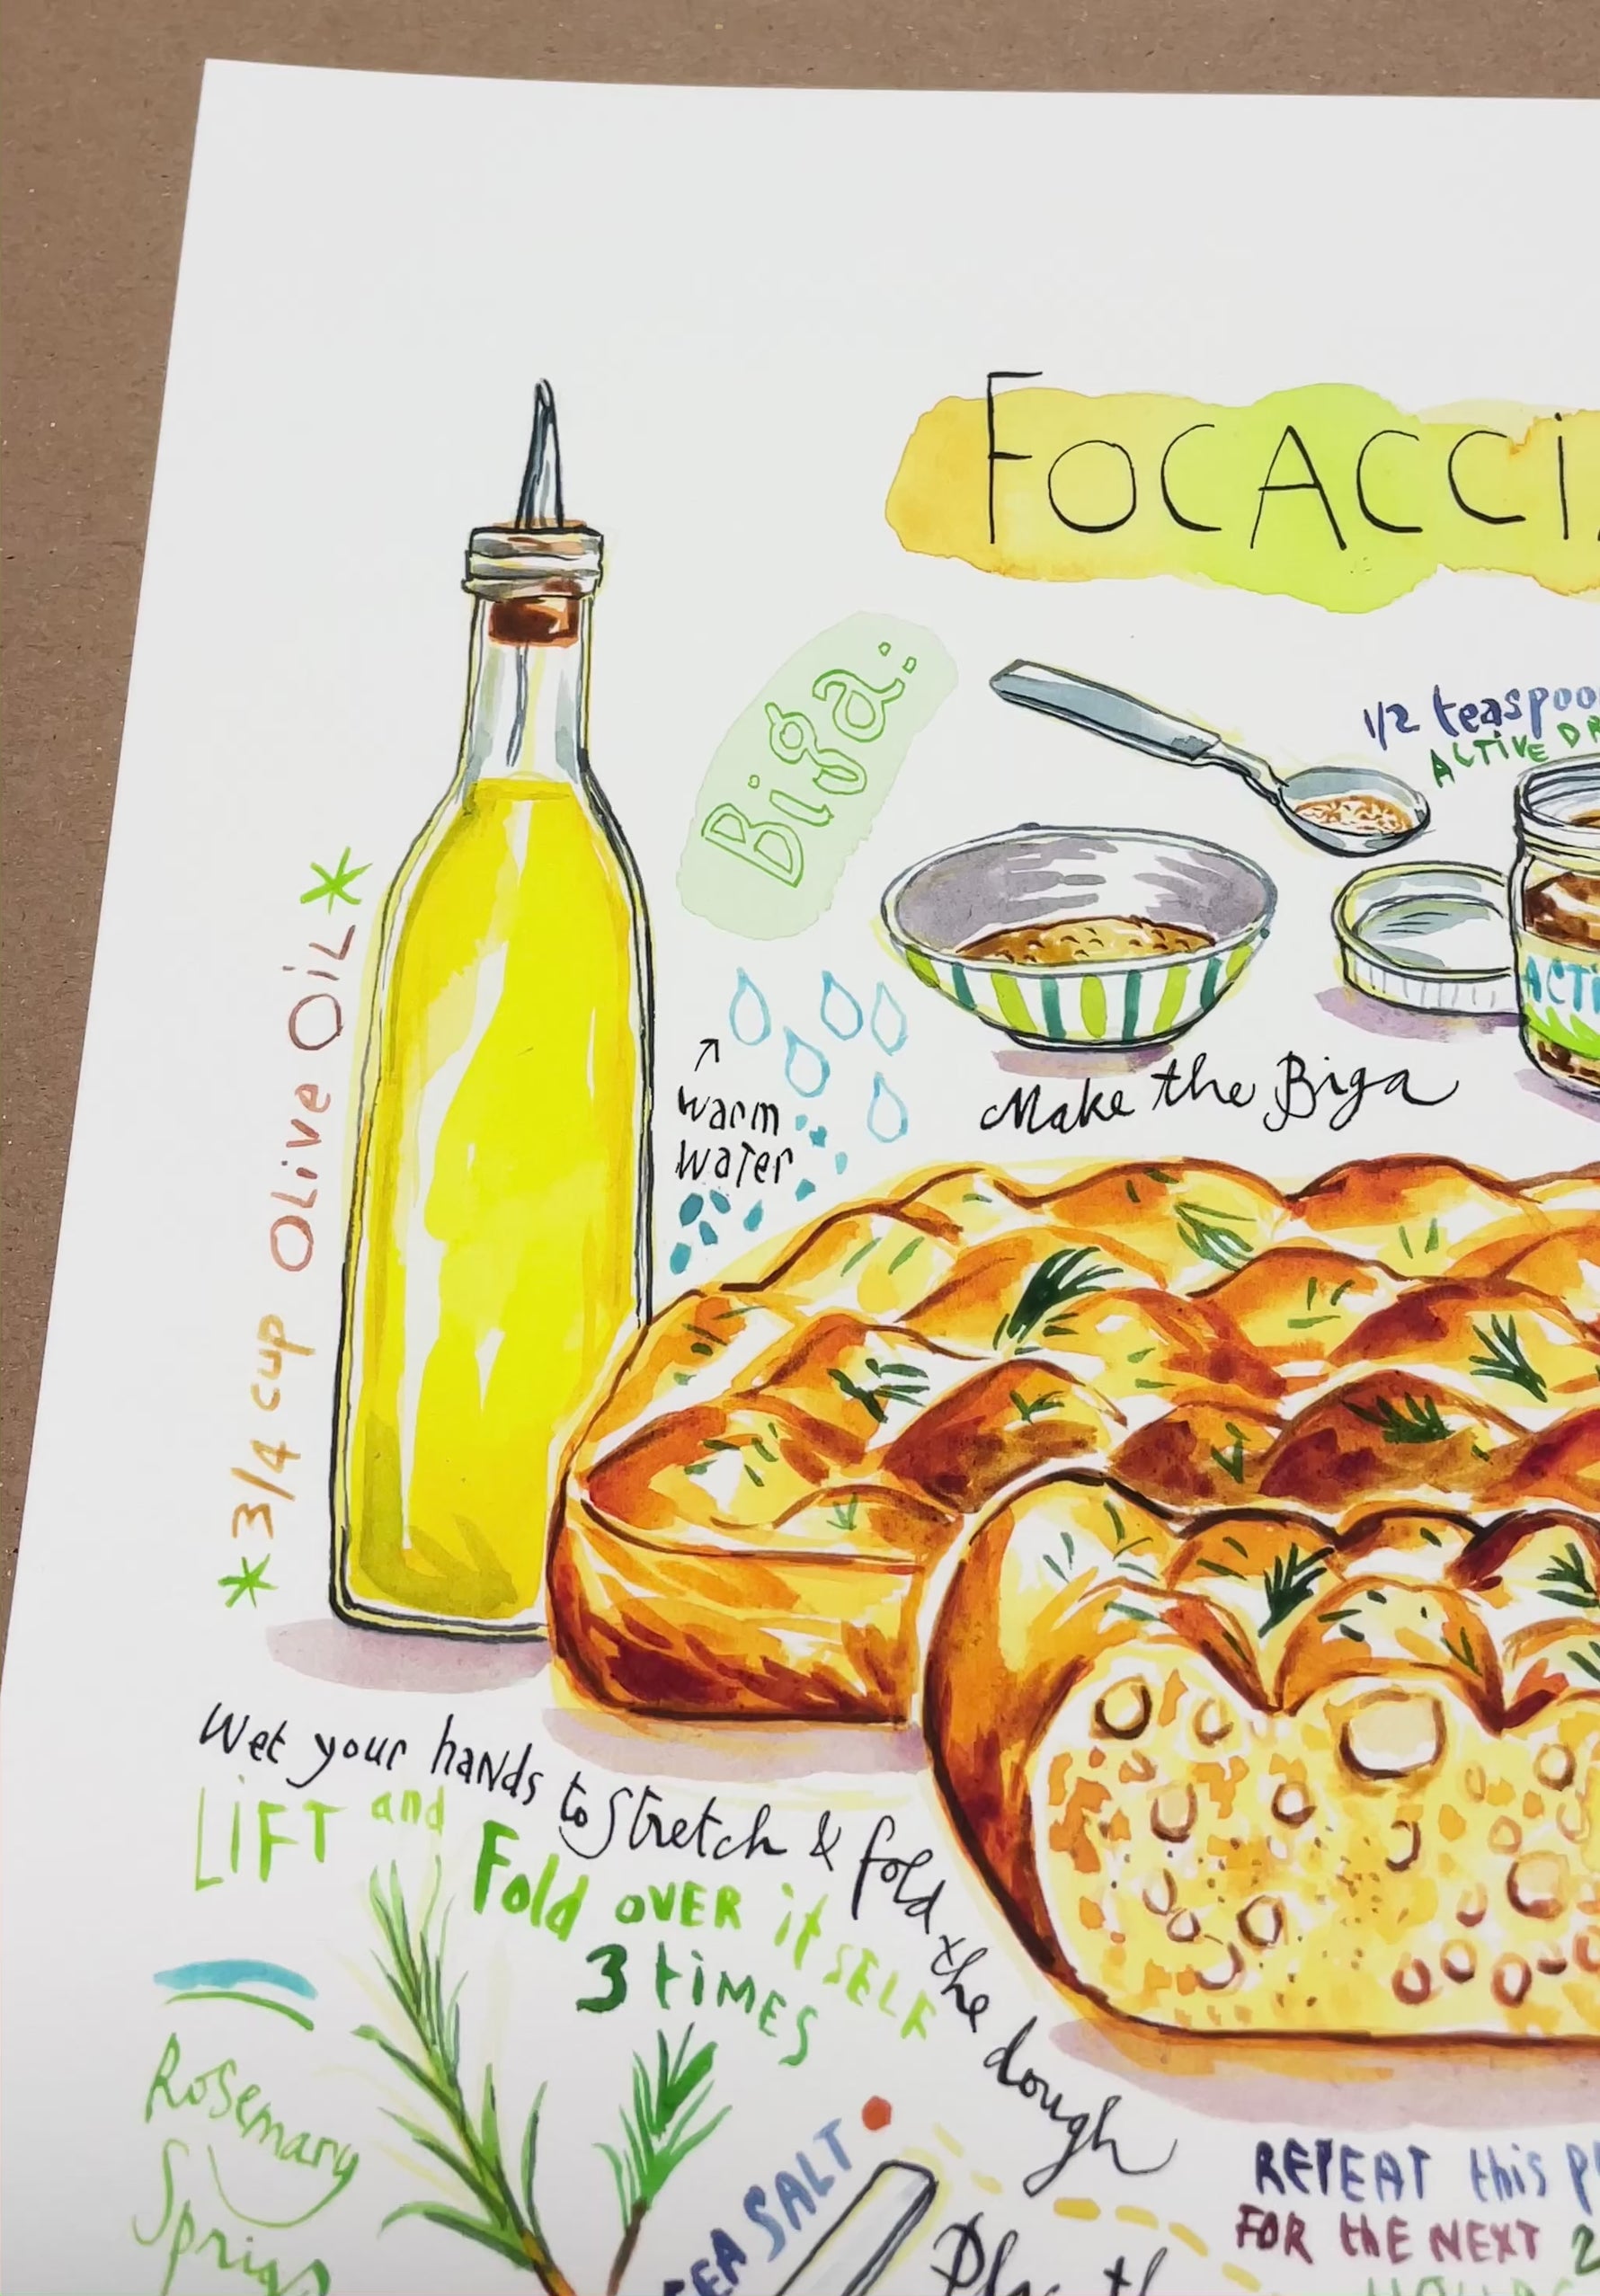 FOCACCI
Biga:
1/2 teaspoo
ACTIVE DR
ACTI
warm
water
Make the Biga
*3/4 cup Olive Oil*
Wet your hands to stretch & fold the dough
LIFT and Fold OVER itSELF
3 tiMES
Rosemary
Sprigs
SEA SALT
REPEAT this p
FOR the NEXT 2